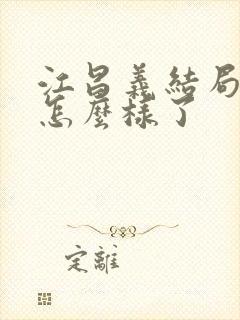 江昌義結局
怎麼樣了
定離